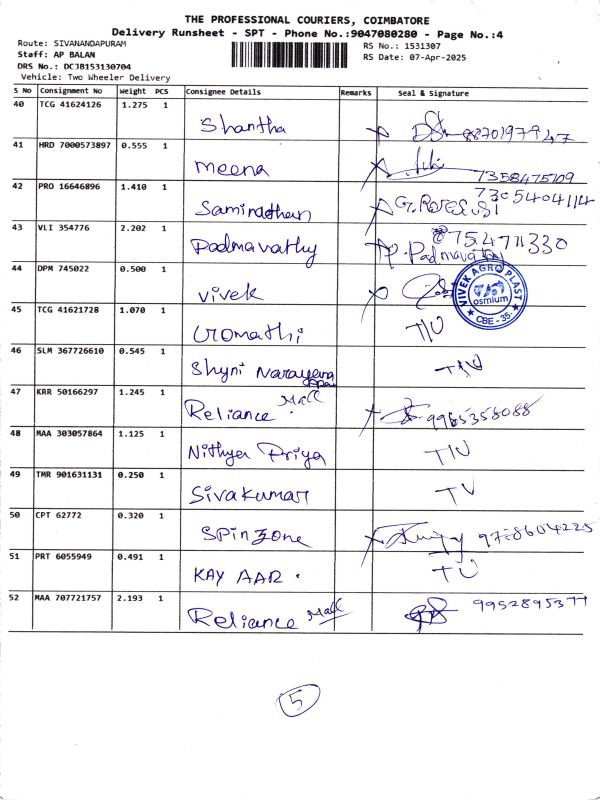 THE PROFESSIONAL COURIERS, COIMBATORE
Delivery Runsheet - SPT - Phone No.:9047080280 - Page No.:4
Route: SIVANANDAPURAM
RS No.: 1531307
Staff: AP BALAN
RS Date: 07-Apr-2025
DRS No.: DCJB153130704
Vehicle: Two Wheeler Delivery
S No Consignment No Weight PCS Consignee Details Remarks Seal & Signature
40 TCG 41624126 1.275 1 Shantha
41 HRD 7000573897 0.555 1 Meena 7358475709
42 PRO 16646896 1.410 1 7305404114
43 VLI 354776 2.202 1 Padmavathy P. Padmavathy
44 DPM 745022 0.500 1 Vivek VIVEK AGRO PLAST osmium CBE - 35.
45 TCG 41621728 1.070 1 Gomathi
46 SLM 367726610 0.545 1 Shyni
47 KRR 50166297 1.245 1 Reliance Mall 9965358088
48 MAA 303057864 1.125 1 Nithya Priya
49 TMR 901631131 0.250 1 Sivakumar
50 CPT 62772 0.320 1 Spinzone
51 PRT 6055949 0.491 1 KAY AAR .
52 MAA 707721757 2.193 1 Reliance Mall
5